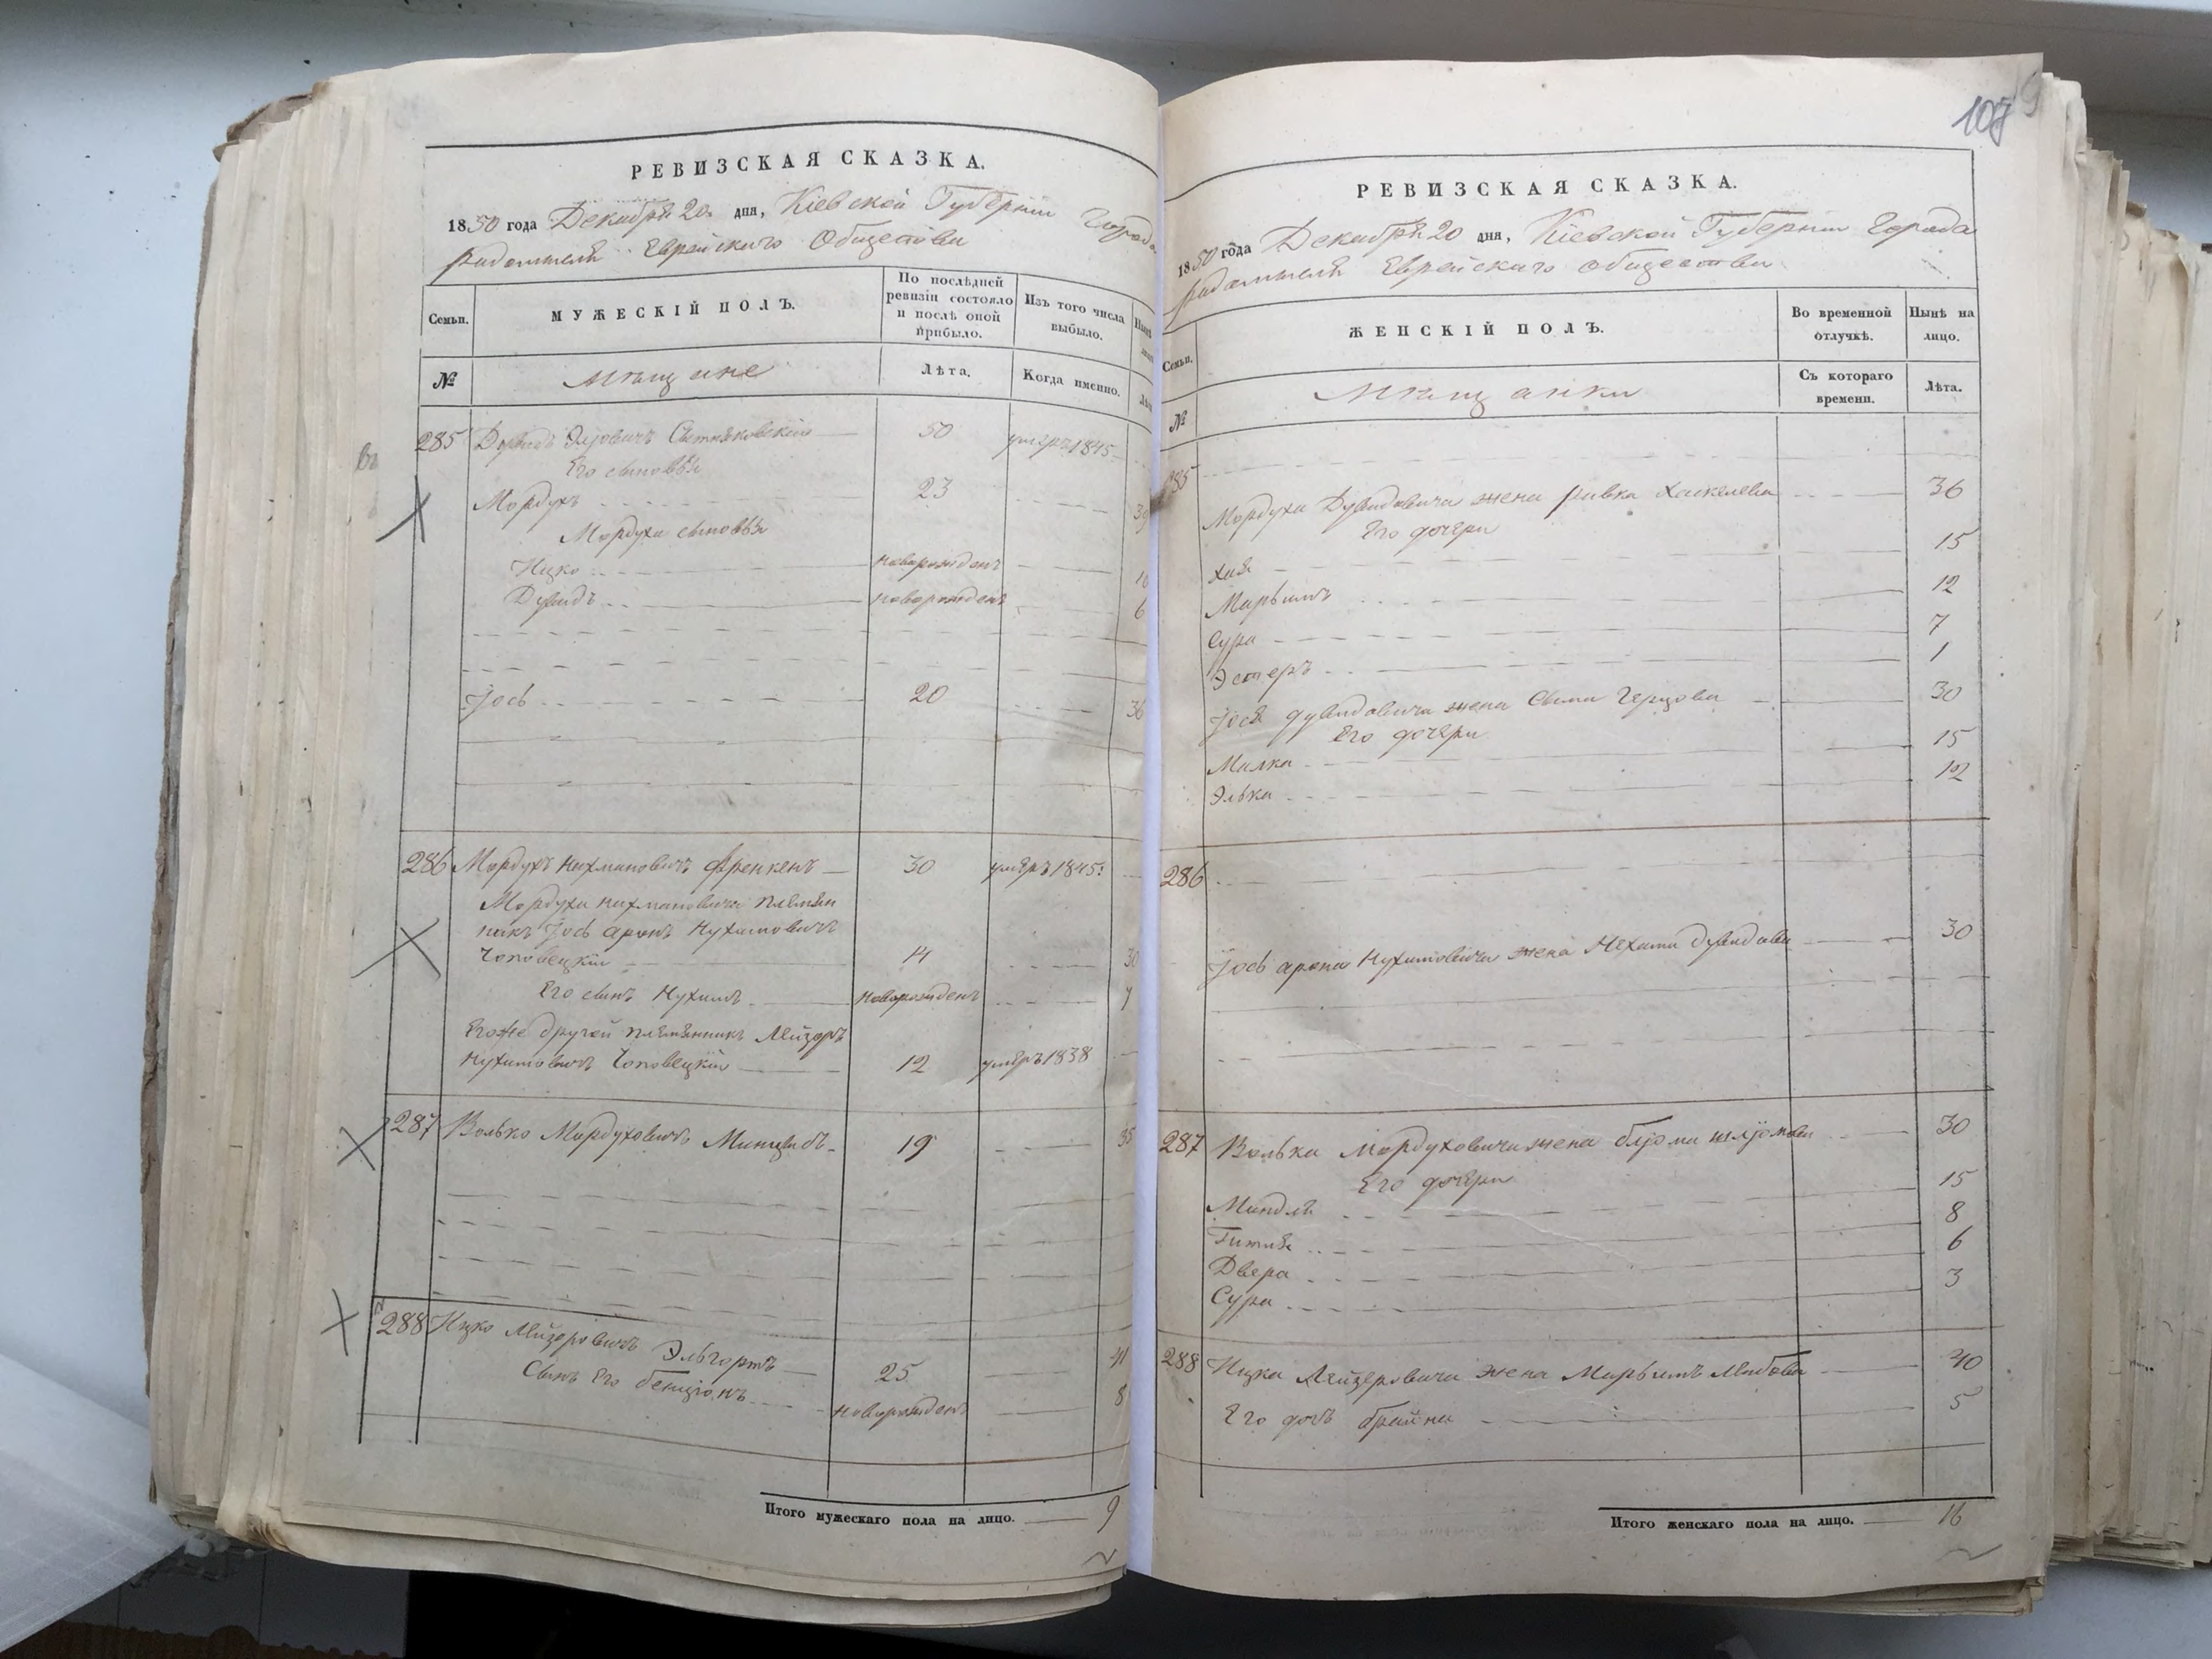 РЕВИЗСКАЯ СКАЗКА.
1850 года Декабря 20 дня, Кіевской Губерніи Города
Радомысля Еврейскаго Общества
Семьи. МУЖЕСКІЙ ПОЛЪ. По послѣдней ревизіи состояло и послѣ оной прибыло. Изъ того числа выбыло.
№ Мѣщане Лѣта. Когда именно.
285 Дувидъ Эліовичъ 50 умеръ 1845
Его сыновья
Мордухъ 23 39
Мордуха сыновья
Ицко новорожденъ 10
Дувидъ новорожденъ 6
Іось 20 36
286 Мордухъ Нахмановичъ Френкенъ 30 умеръ 1845
Мордуха Нахмановича племян
никъ Іось Аронъ Нухимовичъ
Чоповецкій 14 30
Его сынъ Нухимъ новорожденъ 7
Егоже другой племянникъ Лейзоръ
Нухимовичъ Чоповецкій 12 умеръ 1838
287 Волько Мордуховичъ 19 35
288 Ицко Лейзоровичъ Эльгортъ 25 41
Сынъ Его Бенціонъ новорожденъ 8
Итого мужескаго пола на лицо. 9
107
РЕВИЗСКАЯ СКАЗКА.
1850 года Декабря 20 дня, Кіевской Губерніи Города
Радомысля Еврейскаго Общества
Семьи. ЖЕНСКІЙ ПОЛЪ. Во временной отлучкѣ. Нынѣ на лицо.
№ Мѣщанки Съ котораго времени. Лѣта.
285
Мордуха Дувидовича жена Ривка Хаскелева 36
Его дочери
Хая 15
Марьимъ 12
Сура 7
Эстеръ 1
Іося Дувидовича жена Сима Герцова 30
Его дочери
Малка 15
Элька 12
286
Іось Арона Нухимовича жена Нехама Дувидова 30
287 Волька Мордуховича жена Блюма Шліомова 30
Его дочери
Миндля 15
Гитля 8
Двера 6
Сура 3
288 Ицка Лейзеровича жена Марьимъ Лейбова 40
Его дочь Брайна 5
Итого женскаго пола на лицо. 16